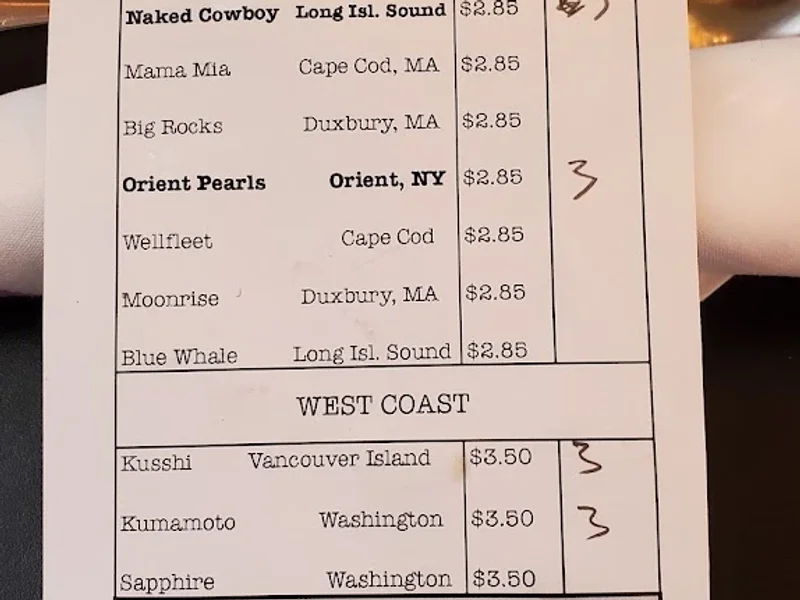 Naked Cowboy Long Isl. Sound $2.85
Mama Mia Cape Cod, MA $2.85
Big Rocks Duxbury, MA $2.85
Orient Pearls Orient, NY $2.85 3
Wellfleet Cape Cod $2.85
Moonrise Duxbury, MA $2.85
Blue Whale Long Isl. Sound $2.85
WEST COAST
Kusshi Vancouver Island $3.50 3
Kumamoto Washington $3.50 3
Sapphire Washington $3.50